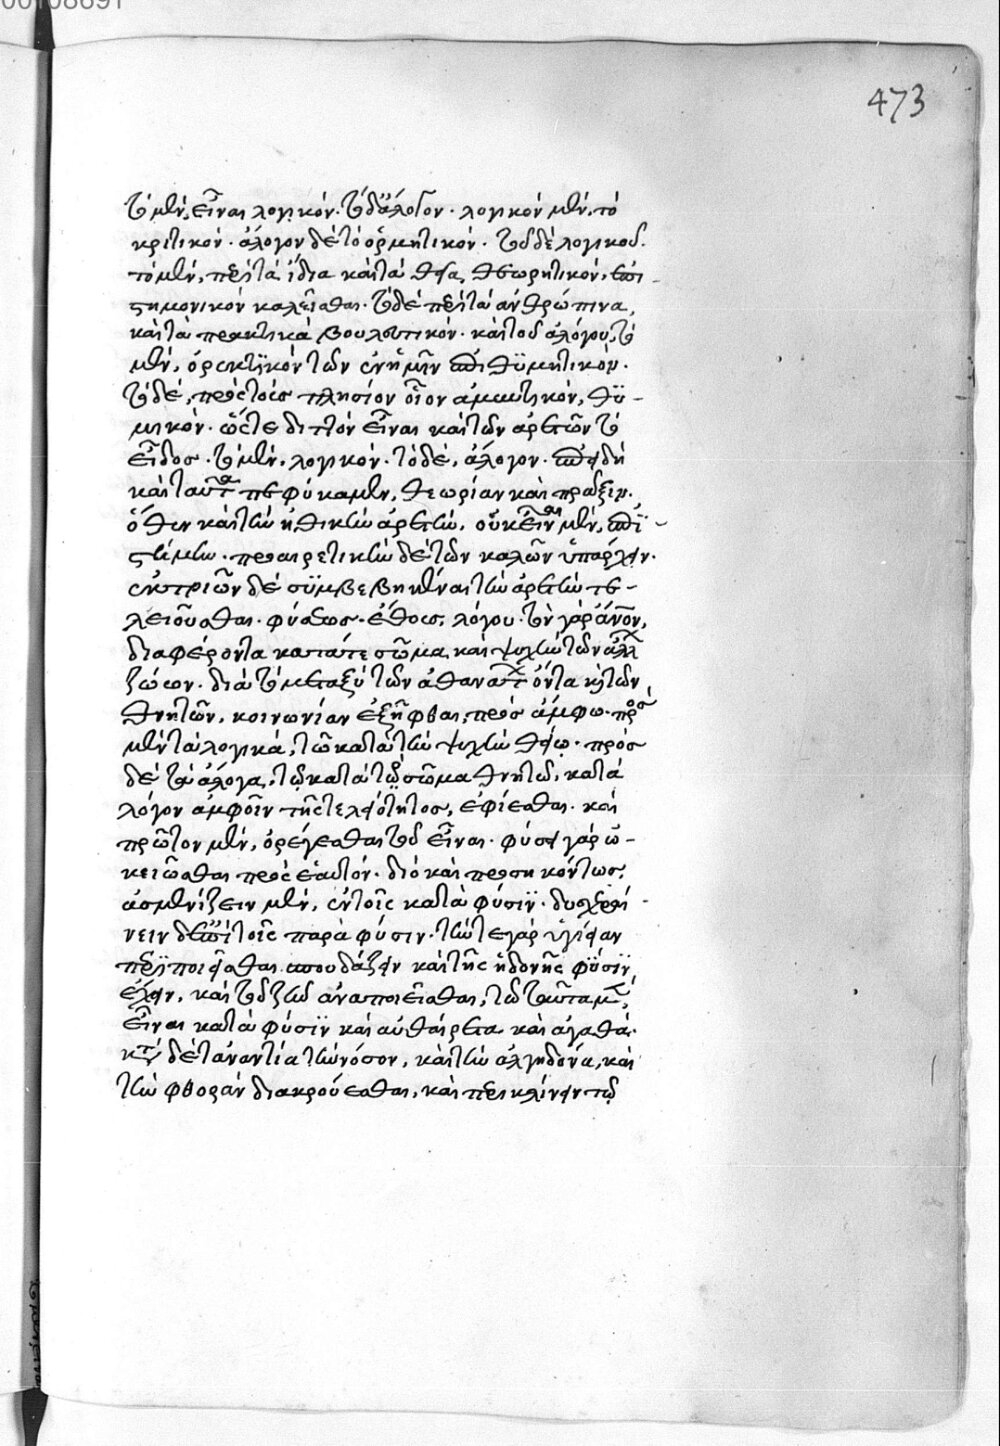 00108691
473
τὸ μὲν, εἶναι λογικόν· τὸ δ' ἄλογον· λογικὸν μὲν, τὸ
κριτικόν· ἄλογον δὲ τὸ ὁρμητικόν· τοῦ δὲ λογικοῦ·
τὸ μὲν, περὶ τὰ ἴδια καὶ τὰ θεῖα, θεωρητικὸν, ἐπι-
στημονικὸν καλεῖσθαι· τὸ δὲ περὶ τὰ ἀνθρώπινα,
καὶ τὰ πρακτικὰ βουλευτικόν· καὶ τοῦ ἀλόγου, τὸ
μὲν, ὀρεκτϊκὸν τῶν ἐν ἡμῖν ἐπιθϋμητικόν·
τὸ δὲ, πρὸς τοὺς πλησίον οἷον ἀμυντικὸν, θϋ-
μικόν· ὥστε διττὸν εἶναι καὶ τῶν ἀρετῶν τὸ
εἶδος· τὸ μὲν, λογικόν· τὸ δὲ, ἄλογον· ἐπειδὴ
καὶ ταῦτα πεφύκαμεν, θεωρίαν καὶ πρᾶξιν·
ὅθεν καὶ τὴν ἠθικὴν ἀρετὴν, οὐκ εἶναι μὲν, ἐπϊ-
στήμην· προαιρετικὴν δὲ τῶν καλῶν ὑπάρχειν·
ἐκ τριῶν δὲ σϋμβεβηκέναι τὴν ἀρετὴν τε-
λειοῦσθαι· φύσεως· ἔθους· λόγου· τὸν γὰρ ἄνον,
διαφέροντα κατά τε σῶμα καὶ ψυχὴν τῶν ἄλλ
ζώων· διὰ τὸ μεταξὺ τῶν ἀθανάτ ὄντα κ τῶν
θνητῶν, κοινωνίαν ἐξῆφθαι, πρὸς ἄμφω· πρὸς
μὲν τὰ λογικὰ, τῶ κατὰ τὴν ψυχὴν θείω· πρὸς
δὲ τὰ ἄλογα, τῷ κατὰ τὸ σῶμα θνητῶ, κατὰ
λόγον ἀμφοῖν τῆς τελειότητος, ἐφίεσθαι· καὶ
πρῶτον μὲν, ὀρέγεσθαι τοῦ εἶναι· φύσει γὰρ ὠ-
κειῶσθαι πρὸς ἑαυτόν· διὸ καὶ προσηκόντως,
ἀσμενίζειν μὲν, ἐν τοῖς κατὰ φύσϊν· δυσχεραί-
νειν δὲ ἐπὶ τοῖς παρὰ φύσιν· τήν τε γὰρ ὑγίειαν
περιποιεῖσθαι σπουδάζειν καὶ τῆς ἡδονῆς φϋσϊν
ἔχειν, καὶ τοῦ ζῶ ἀναποιεῖσθαι, τῶ ταῦτα μ,
εἶναι κατὰ φύσϊν καὶ αὐθαίρετα καὶ ἀγαθά·
κτ δὲ τἀναντία τὴν νόσον, καὶ τὴν ἀλγηδόνα, καὶ
τὴν φθορὰν διακρούεσθαι, καὶ περικλίνειν τῷ